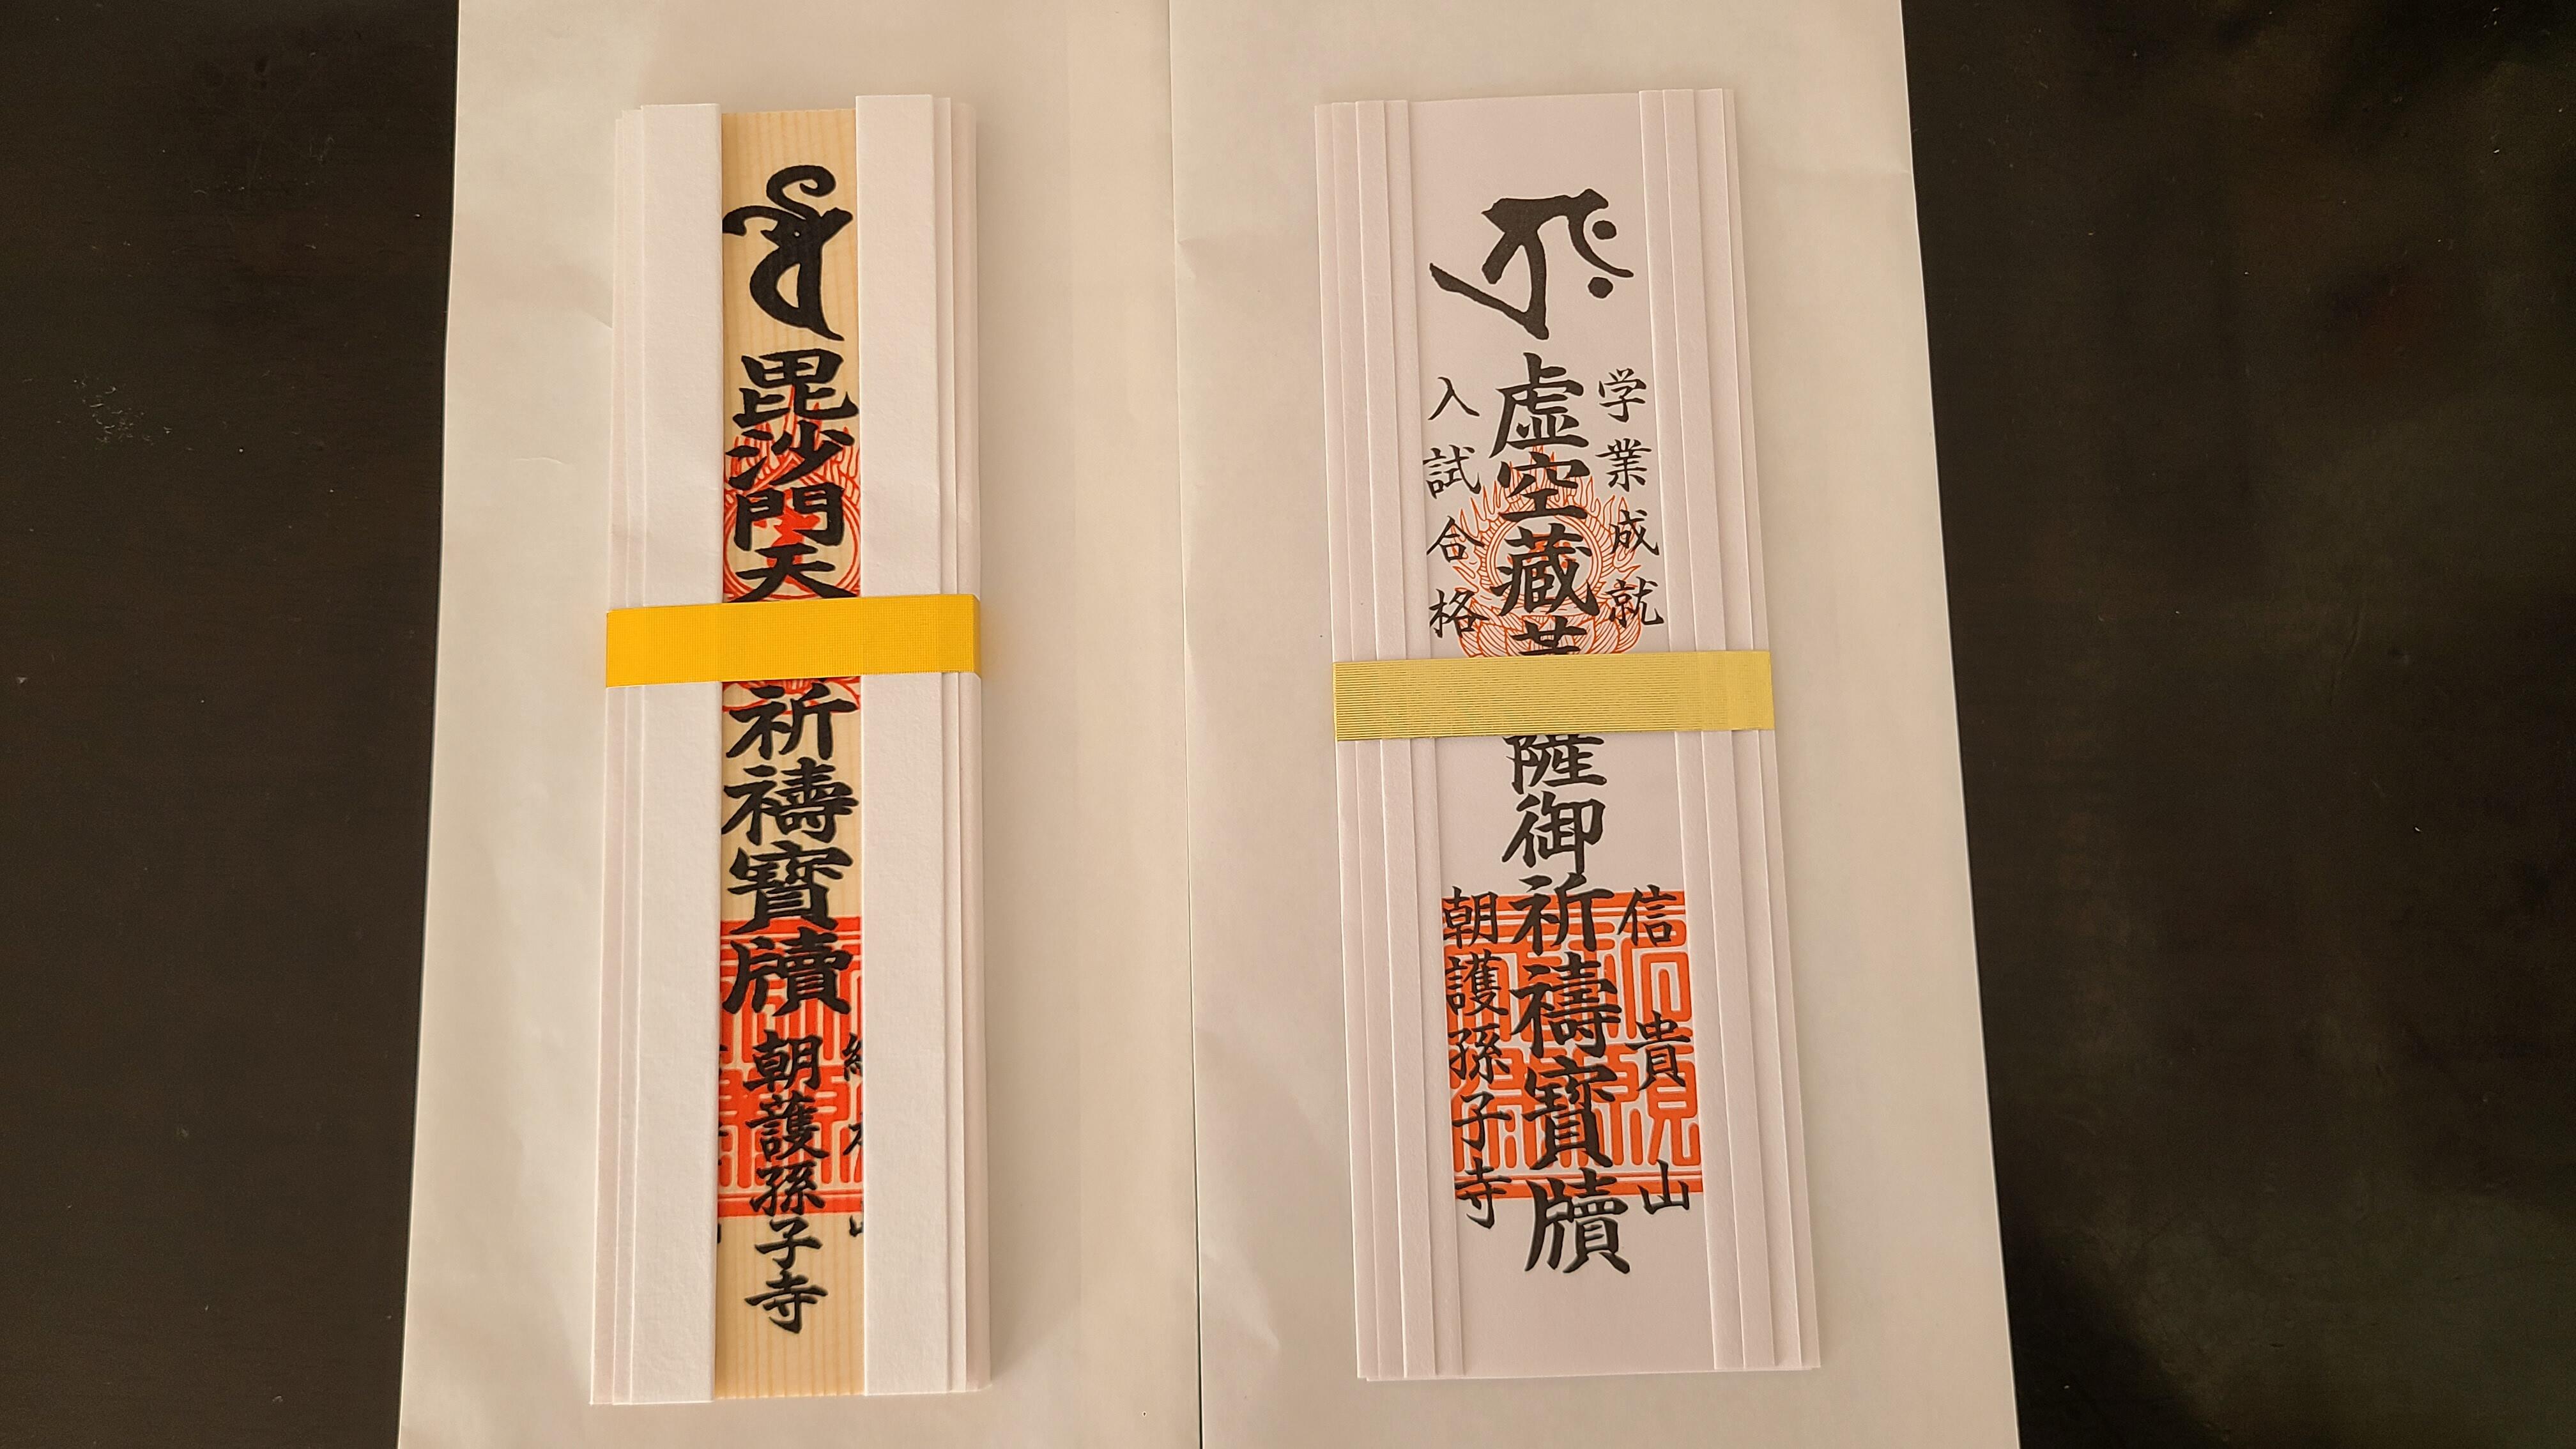 毘沙門天
祈禱寶牘
朝護孫子寺
学業成就
虚空蔵
薩御祈禱寶牘
入試合格
信貴山
朝護孫子寺